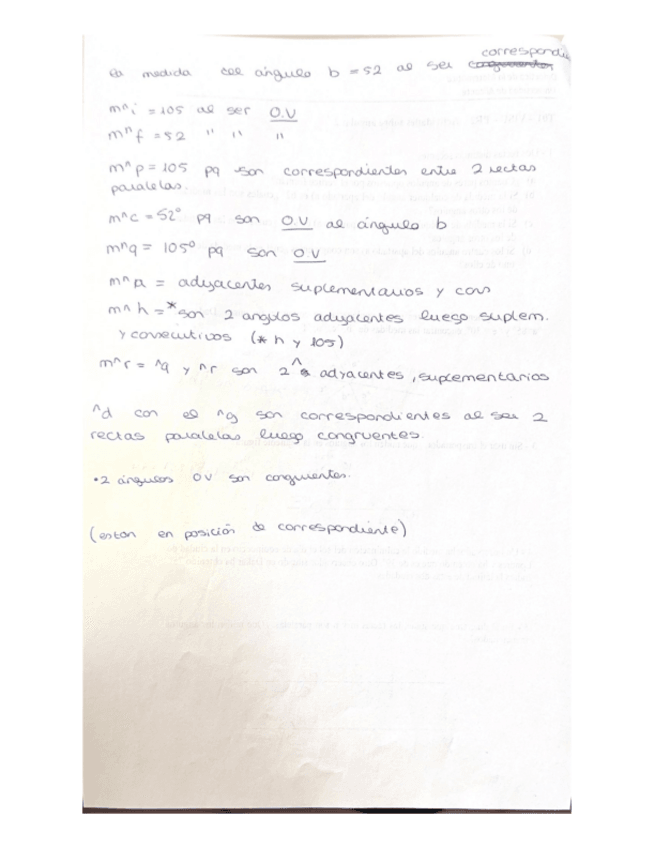 correspondie
la medida del ángulo b = 52 al ser congruentes
m^i = 105 al ser O.V
m^f = 52 " " "
m^p = 105 pq son correspondientes entre 2 rectas
paralelas.
m^c = 52° pq son O.V al ángulo b
m^q = 105° pq son O.V
m^a = adyacentes suplementarios y con
m^h = *son 2 angulos adyacentes luego suplem.
y consecutivos (* h y 105)
m^r = ^q y ^r son 2 ^ adyacentes, suplementarios
^d con el ^g son correspondientes al ser 2
rectas paralelas luego congruentes.
• 2 ángulos OV son congruentes.
(estan en posición de correspondiente)